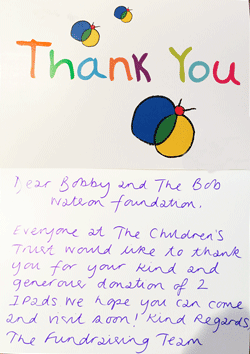 Thank You
Dear Bobby and The Bob
Watson foundation,
Everyone at The Children's
Trust would like to thank
you for your kind and
generous donation of 2
IPads We hope you can come
and visit soon! Kind Regards
The Fundraising Team